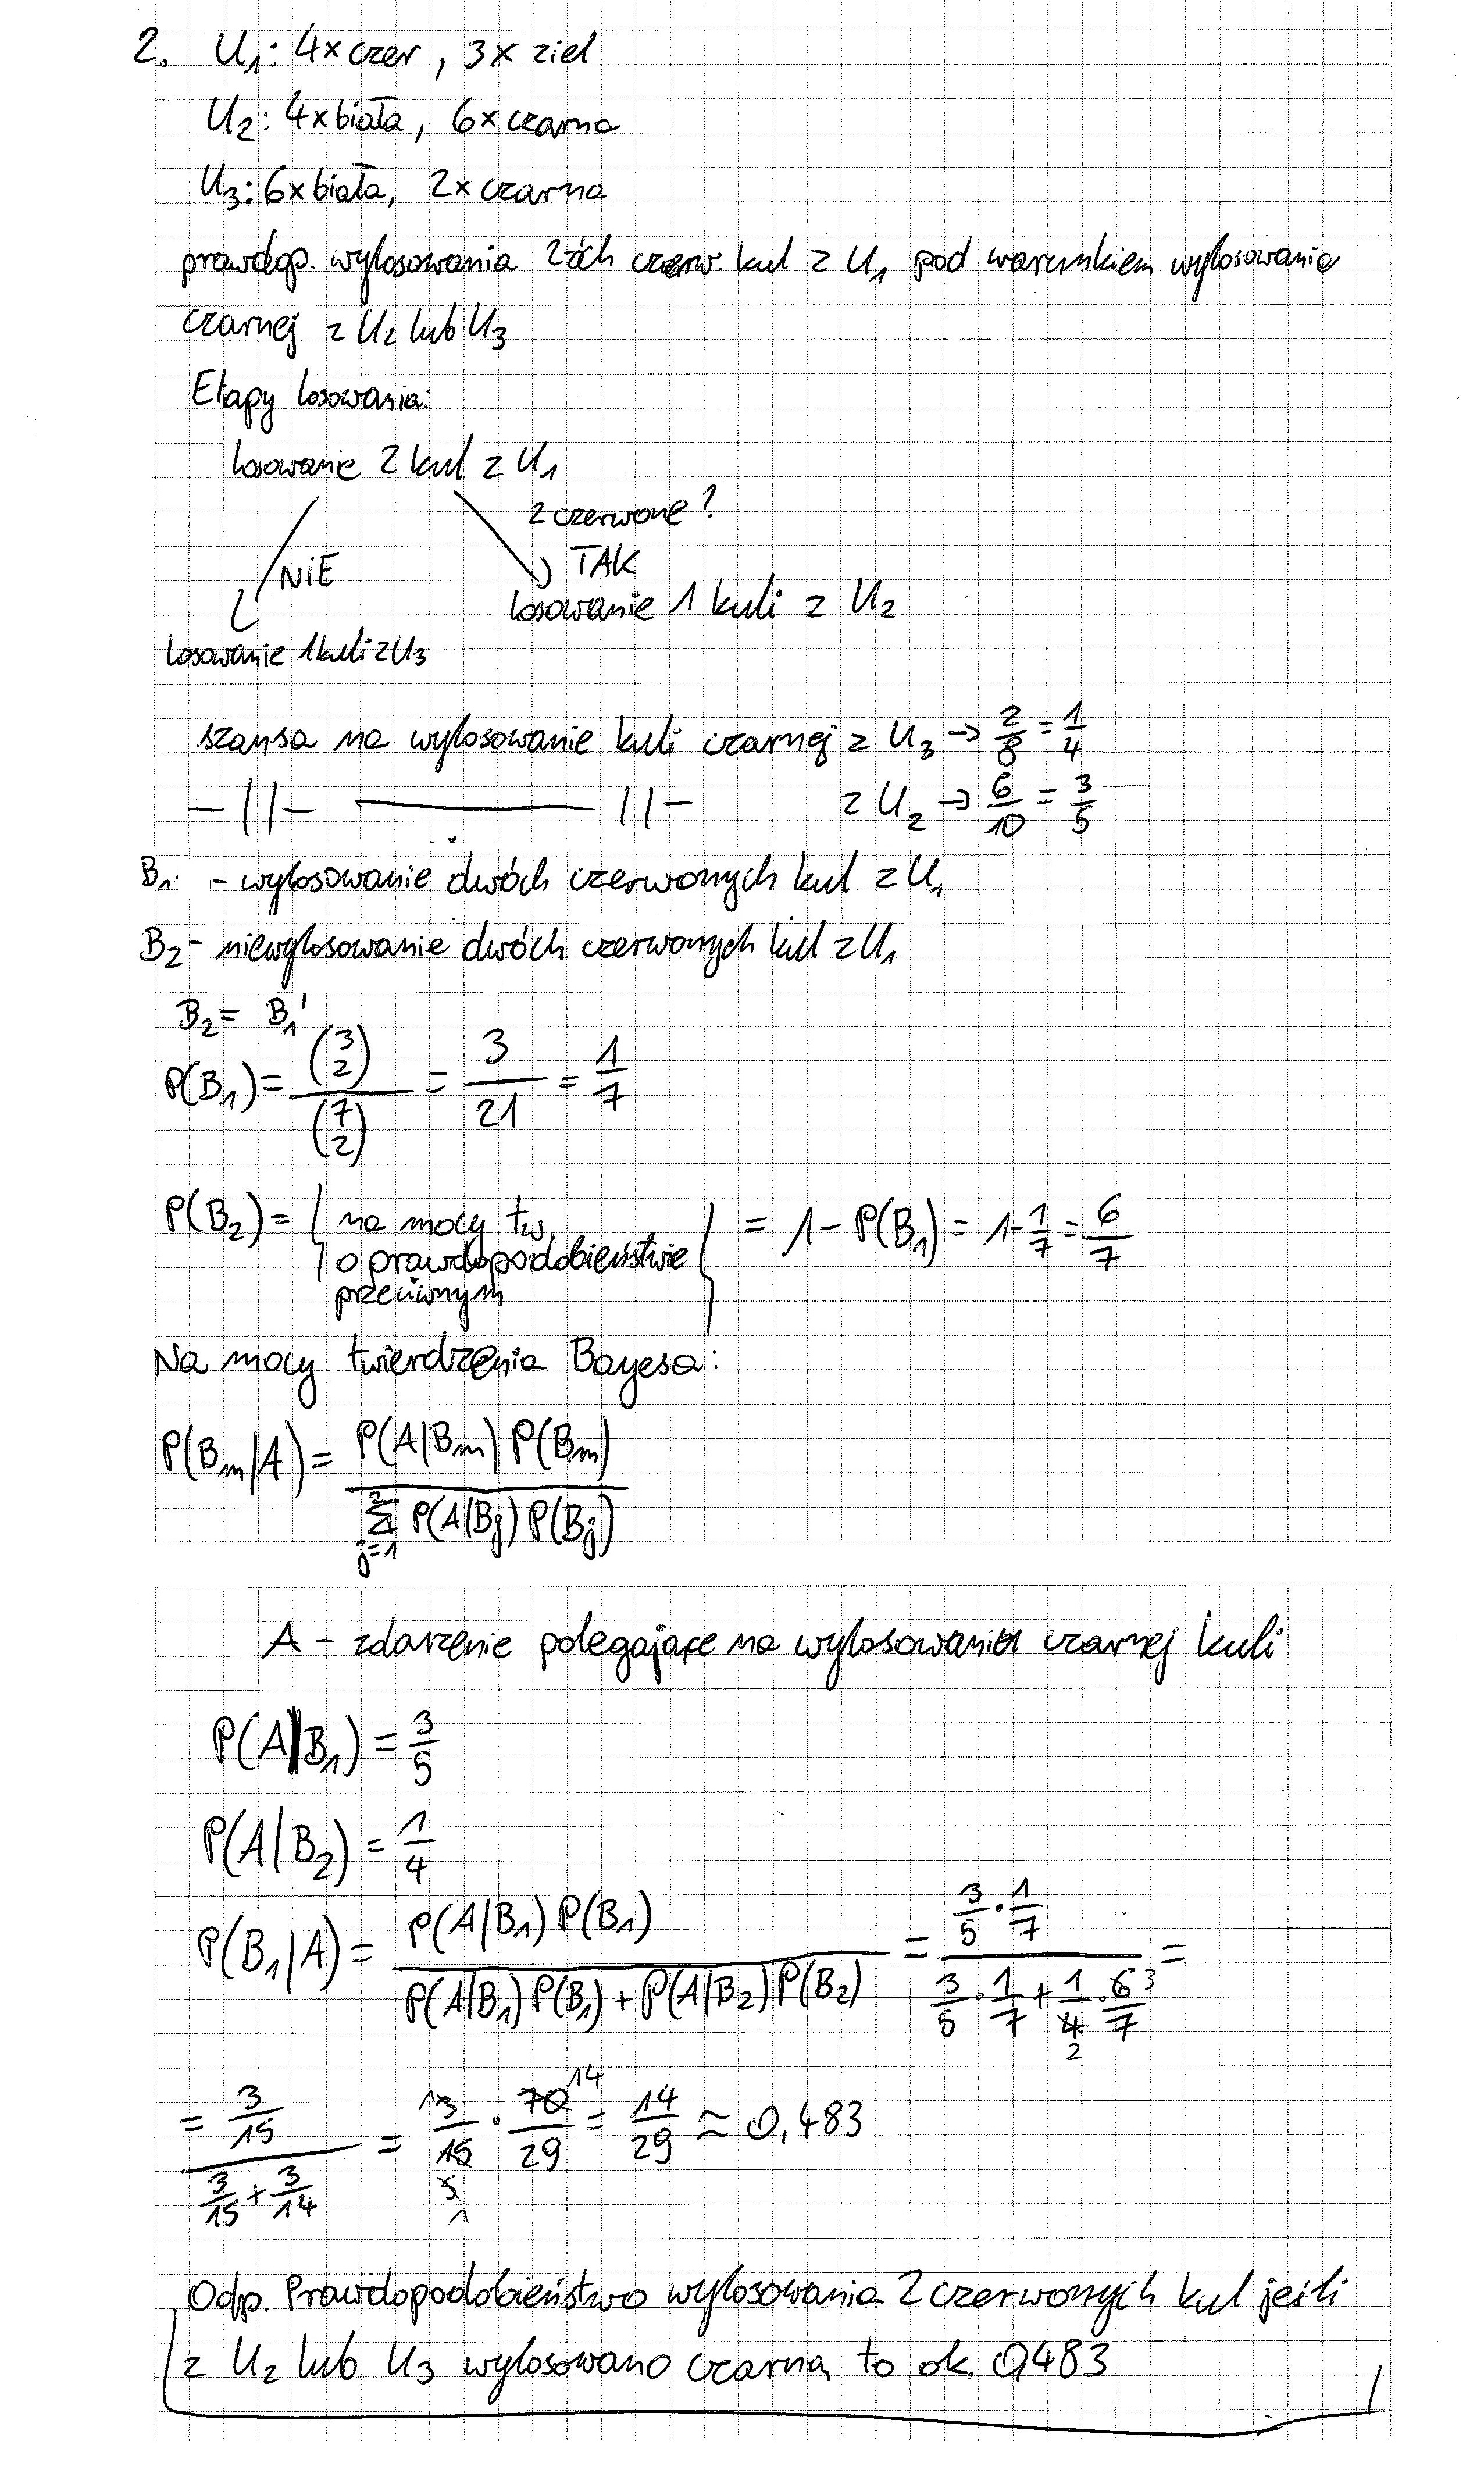 2. U₁: 4x czer, 3x ziel
U₂: 4x biała, 6x czarna
U₃: 6x biała, 2x czarna
prawdop. wylosowania 2óch czerw. kul z U₁ pod warunkiem wylosowania
czarnej z U₂ lub U₃
Etapy losowania:
losowanie 2 kul z U₁
2 czerwone?
NIE TAK
losowanie 1 kuli z U₂
losowanie 1 kuli z U₃
szansa na wylosowanie kuli czarnej z U₃ → 2/8 = 1/4
-||- ——— ||- z U₂ → 6/10 = 3/5
B₁ - wylosowanie dwóch czerwonych kul z U₁
B₂ - niewylosowanie dwóch czerwonych kul z U₁
B₂ = B₁'
P(B₁) = (3 2)/(7 2) = 3/21 = 1/7
P(B₂) = { na mocy tw. o prawdopodobieństwie przeciwnym } = 1 - P(B₁) = 1 - 1/7 = 6/7
Na mocy twierdzenia Bayesa:
P(Bₘ|A) = P(A|Bₘ) P(Bₘ) / Σ²ⱼ₌₁ P(A|Bⱼ) P(Bⱼ)
A - zdarzenie polegające na wylosowaniu czarnej kuli
P(A|B₁) = 3/5
P(A|B₂) = 1/4
P(B₁|A) = P(A|B₁) P(B₁) / (P(A|B₁) P(B₁) + P(A|B₂) P(B₂)) = (3/5 · 1/7) / (3/5 · 1/7 + 1/4 2 · 6/7 3) =
= (3/15) / (3/15 + 3/14) = 3/15 · 70/29 = 14/29 ≈ 0,483
Odp. Prawdopodobieństwo wylosowania 2 czerwonych kul jeśli
z U₂ lub U₃ wylosowano czarną to ok. 0,483